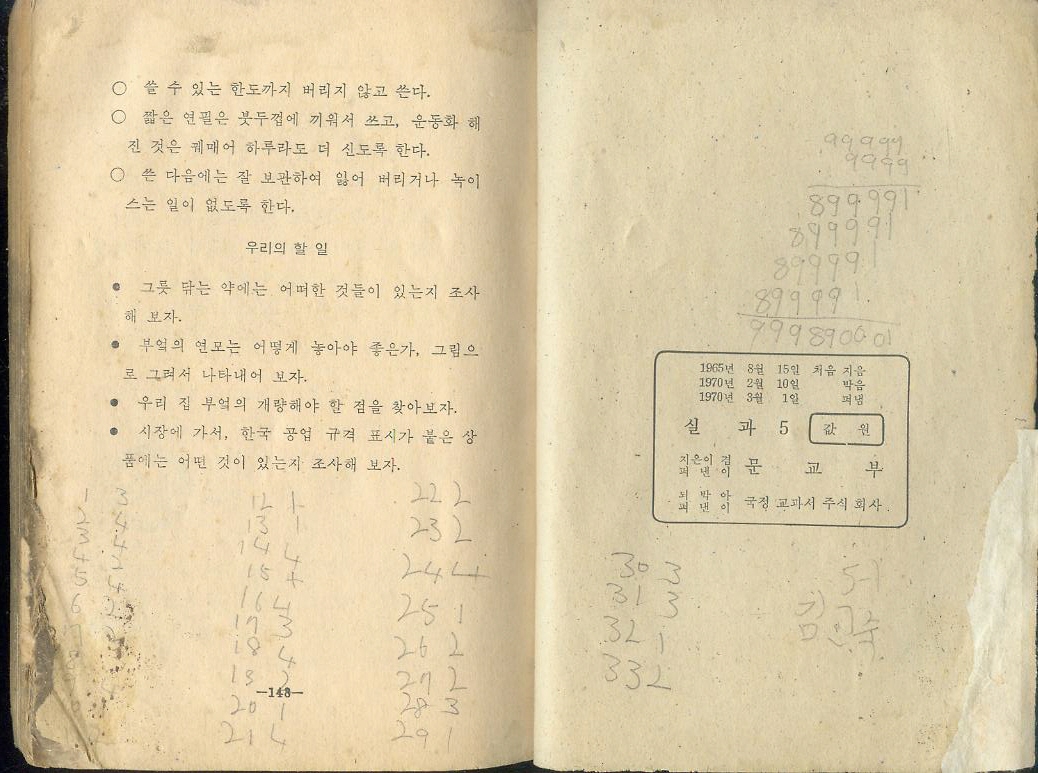 ○ 쓸 수 있는 한도까지 버리지 않고 쓴다.
○ 짧은 연필은 붓두껍에 끼워서 쓰고, 운동화 해
진 것은 꿰매어 하루라도 더 신도록 한다.
○ 쓴 다음에는 잘 보관하여 잃어 버리거나 녹이
스는 일이 없도록 한다.
우리의 할 일
● 그릇 닦는 약에는 어떠한 것들이 있는지 조사
해 보자.
● 부엌의 연모는 어떻게 놓아야 좋은가, 그림으
로 그려서 나타내어 보자.
● 우리 집 부엌의 개량해야 할 점을 찾아보자.
● 시장에 가서, 한국 공업 규격 표시가 붙은 상
품에는 어떤 것이 있는지 조사해 보자.
1 3
2 4
3 4
4 2
5 4
6 2
7
12 1
13 1
14 4
15 4
16 4
17 3
18 4
19 2
20 1
21 4
22 2
23 2
24 4
25 1
26 2
27 2
28 3
29 1
—148—
99999
9999
899991
899991
899991
899991
999890001
1965년 8월 15일 처음 지음
1970년 2월 10일 박음
1970년 3월 1일 펴냄
실 과 5 값 원
지은이 겸
펴 낸 이 문 교 부
되 박 아
펴 낸 이 국정 교과서 주식 회사
30 3
31 3
32 1
33 2
5-1